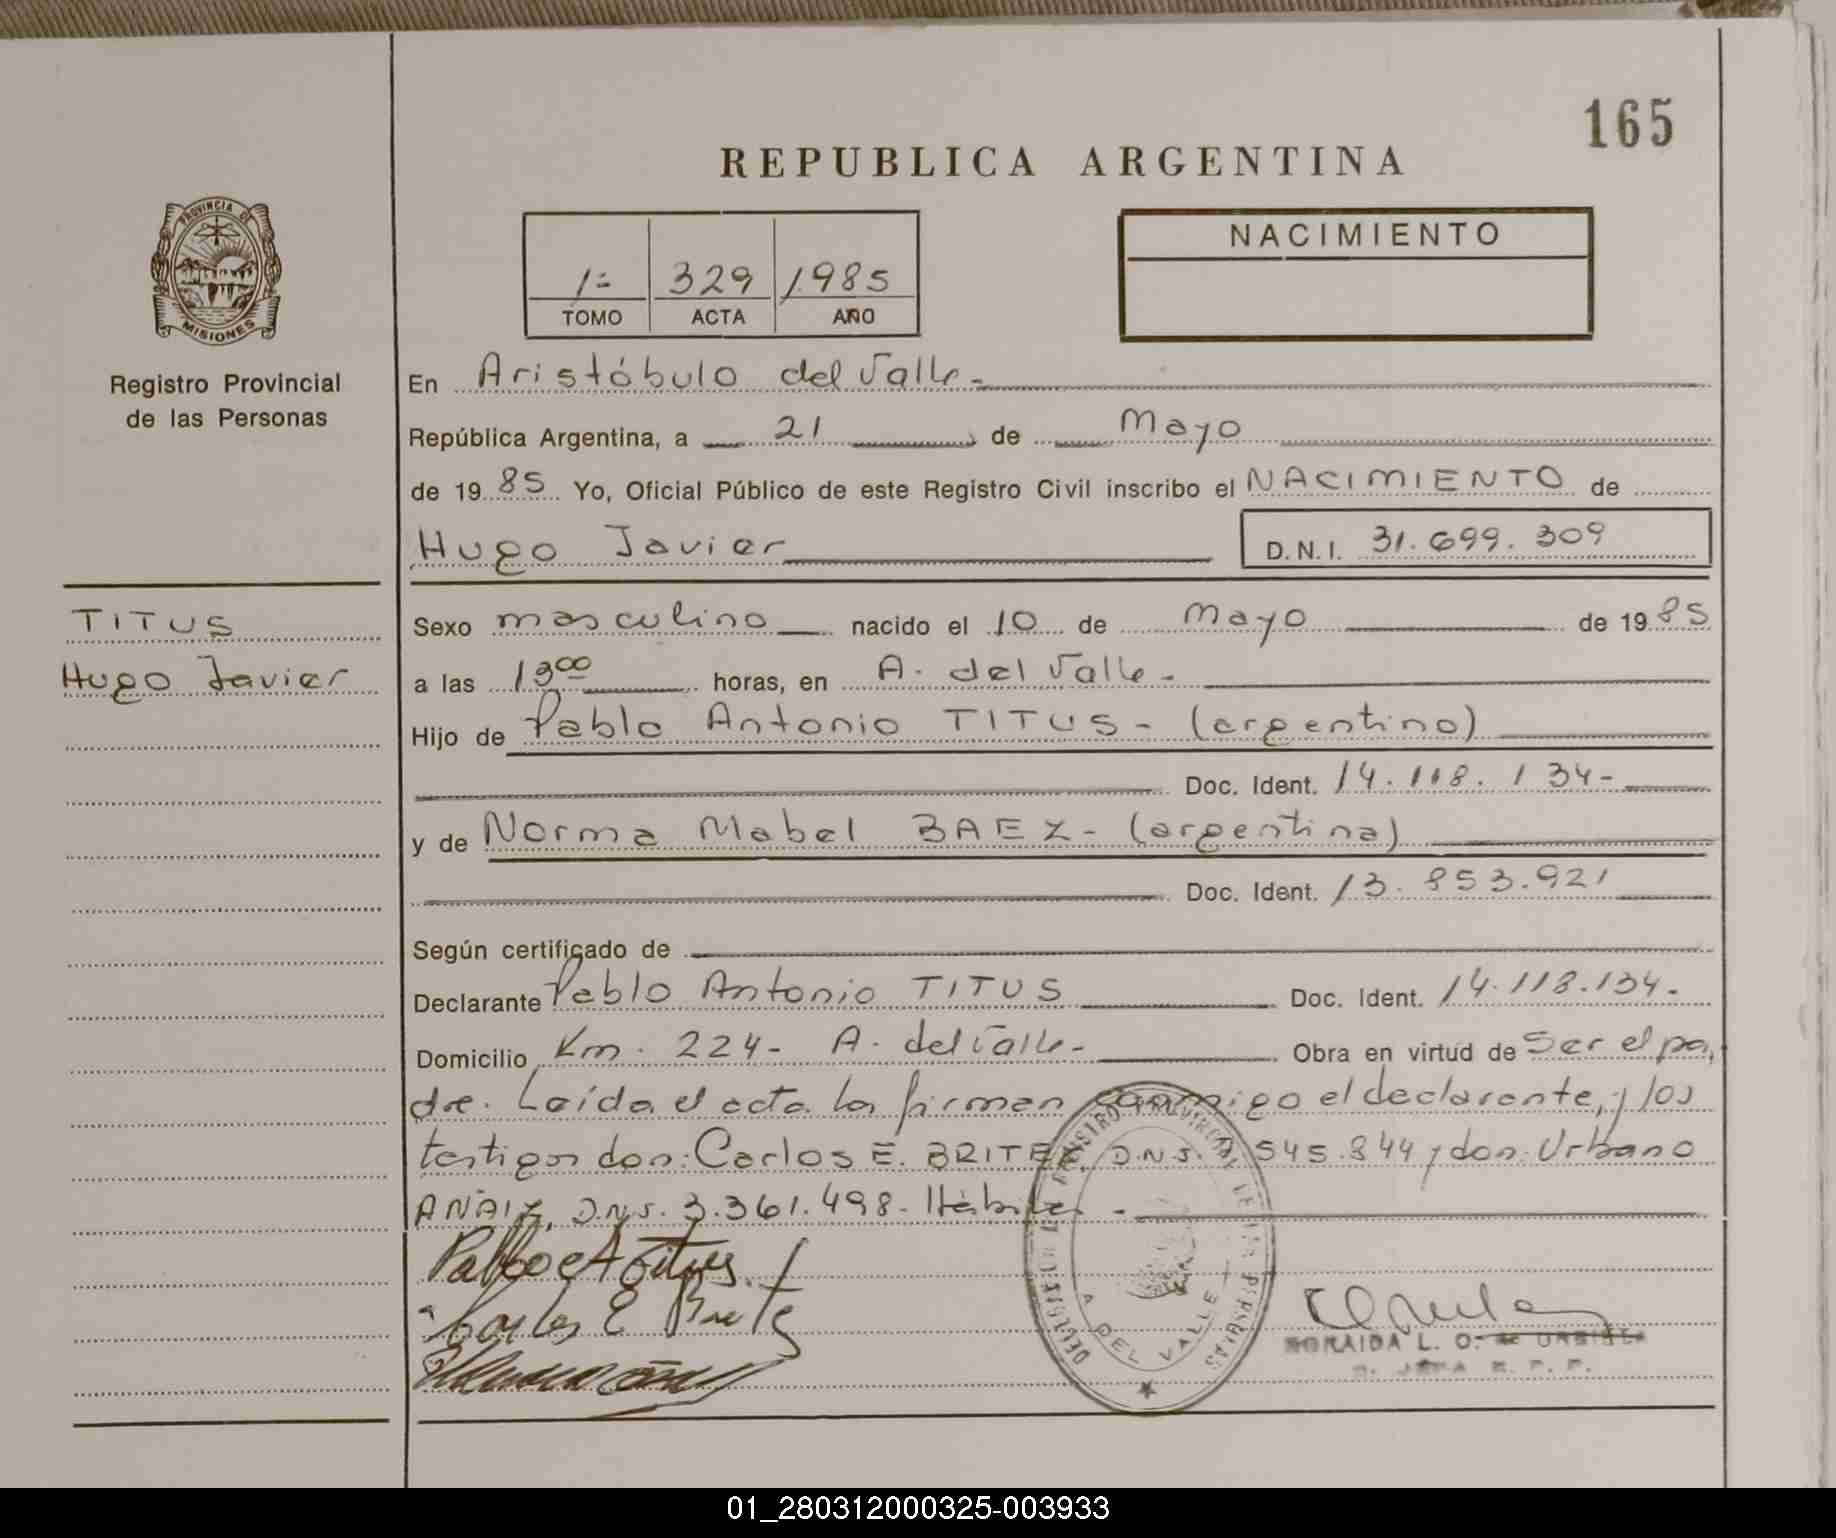 165
REPUBLICA ARGENTINA
PROVINCIA DE
MISIONES
Registro Provincial
de las Personas
1º 329 1985
TOMO ACTA AÑO
NACIMIENTO
En Aristóbulo del Valle-
República Argentina, a 21 de Mayo
de 1985 Yo, Oficial Público de este Registro Civil inscribo el NACIMIENTO de
Hugo Javier D.N.I. 31.699.309
TITUS
Hugo Javier
Sexo masculino nacido el 10 de Mayo de 1985
a las 13⁰⁰ horas, en A. del Valle-
Hijo de Pablo Antonio TITUS- (argentino)
Doc. Ident. 14.118.134-
y de Norma Mabel BAEZ- (argentina)
Doc. Ident. 13.853.921
Según certificado de
Declarante Pablo Antonio TITUS Doc. Ident. 14.118.134.
Domicilio Km. 224- A. del Valle- Obra en virtud de Ser el pa,
dre. Leída el acta la firman conmigo el declarante, y los
testigos don: Carlos E. BRITEZ, D.N.I. 545.844 y don: Urbano
AÑAIZ, D.N.I. 3.361.498. Hábiles-
Pablo A Titus
Carlos E Britez
A. DEL VALLE
SORAIDA L. O. de
01_280312000325-003933